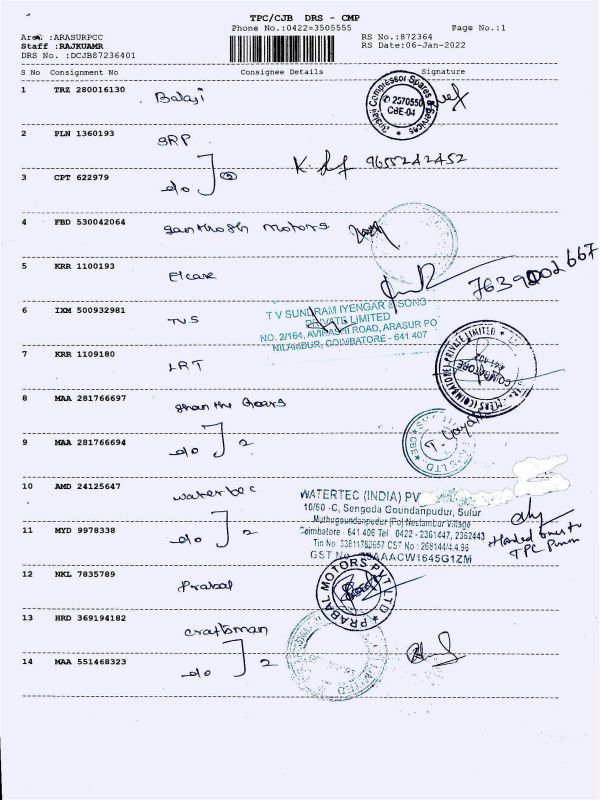 TPC/CJB DRS - CMP
Phone No.:0422=3505555
Page No.:1
Area :ARASURPCC
Staff :RAJKUAMR
DRS No. :DCJB87236401
RS No.:872364
RS Date:06-Jan-2022
S No Consignment No Consignee Details Signature
1 TRZ 280016130 Balaji
Balaji Compressor Spares & Services
2570550
CBE-04
2 PLN 1360193 SRP
K. 9655242452
3 CPT 622979 do 2
4 FBD 530042064 Santhosh Motors
5 KRR 1100193 Elcare
7639002667
6 IXM 500932981 TVS
T V SUNDRAM IYENGAR & SONS
PRIVATE LIMITED
NO. 2/164, AVINASHI ROAD, ARASUR PO
NILAMBUR, COIMBATORE - 641 407
7 KRR 1109180 LRT
(COIMBATORE) PRIVATE LIMITED
COIMBATORE
641 407
8 MAA 281766697 Shanthi Gears
9 MAA 281766694 do 2
CBE
10 AMD 24125647 watertec
WATERTEC (INDIA) PV
10/60 -C, Sengoda Goundanpudur, Sulur
Muthugoundanpudur (Po) Neelambur Village
Coimbatore - 641 406 Tel : 0422 - 2361447, 2362443
11 MYD 9978338 do 2
Handed over to
TPC
12 NKL 7835789 Prabal
PRABAL MOTORS PVT LTD
13 HRD 369194182 craftsman
14 MAA 551468323 do 2